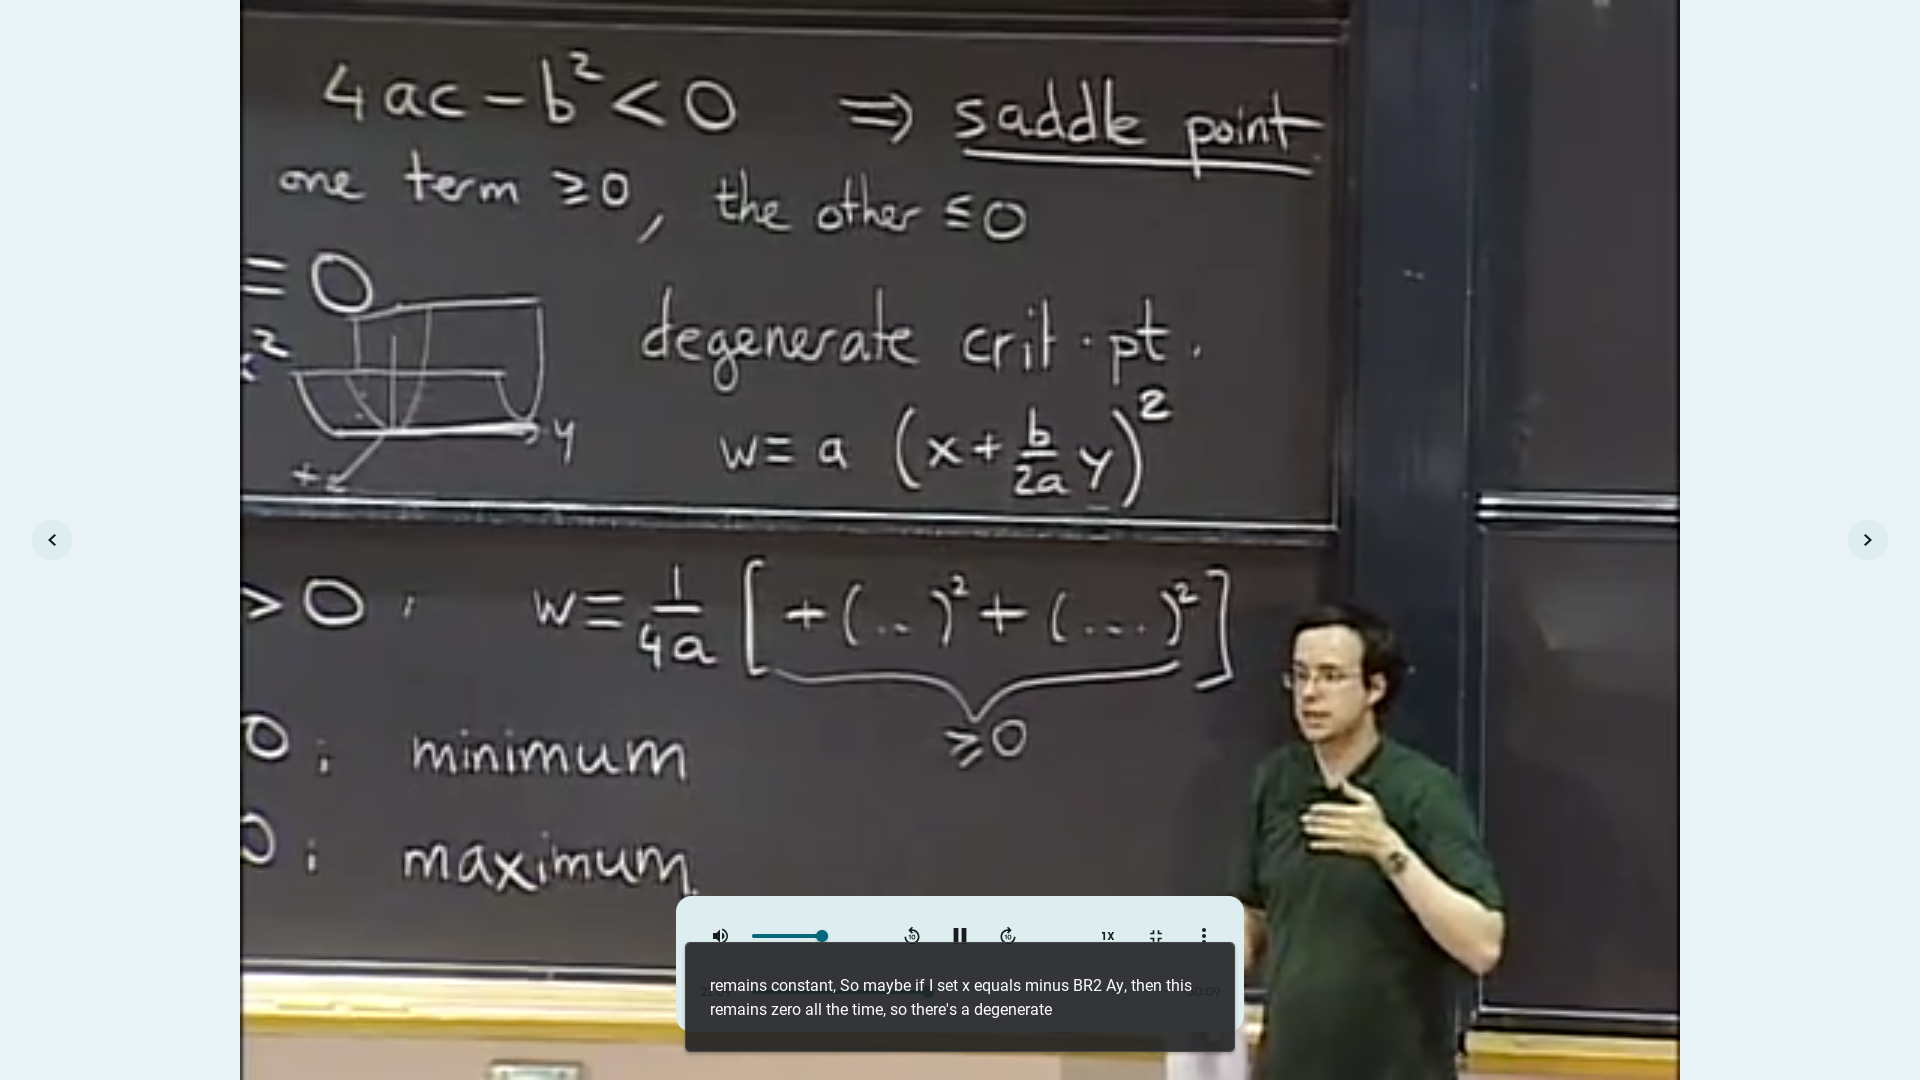 4ac - b² < 0 ⇒ saddle point
one term ≥ 0, the other ≤ 0
= 0
degenerate crit. pt.
w = a (x + b/2a y)²
y
> 0 : w = 1/4a [ + (..)² + (...)² ]
≥ 0
0 : minimum
0 : maximum
10
10
1X
remains constant, So maybe if I set x equals minus BR2 Ay, then this
remains zero all the time, so there's a degenerate